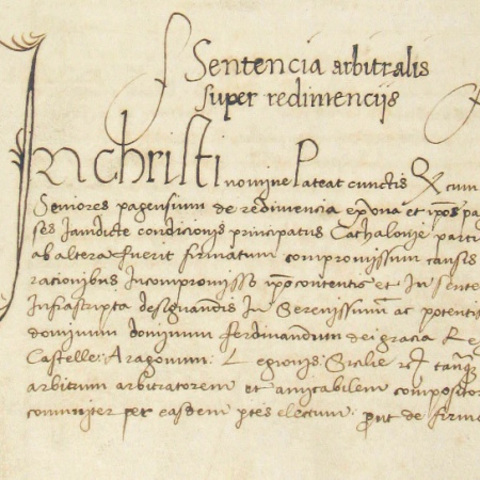 Sentencia arbitralis
super redimencijs
In christi nomine Pateat cunctis Qx cum
Seniores pagensium de redimencia ex vna et ip̄os pa
ses Jamdicte condicionis principatus Cathalonie parti
ab altera fuerit firmatum compromissum causis
racionibus Incompromisso ip̄o contentis et In sente
Infrascripta designandis In Serenissimū ac potentis
dominum dominum ferdinandum dei gracia Re
Castelle: Aragonum: Legionis: Sicilie
arbitrum arbitratorem et amicabilem compositor
communiter per easdem ptēs electum: prout de firma